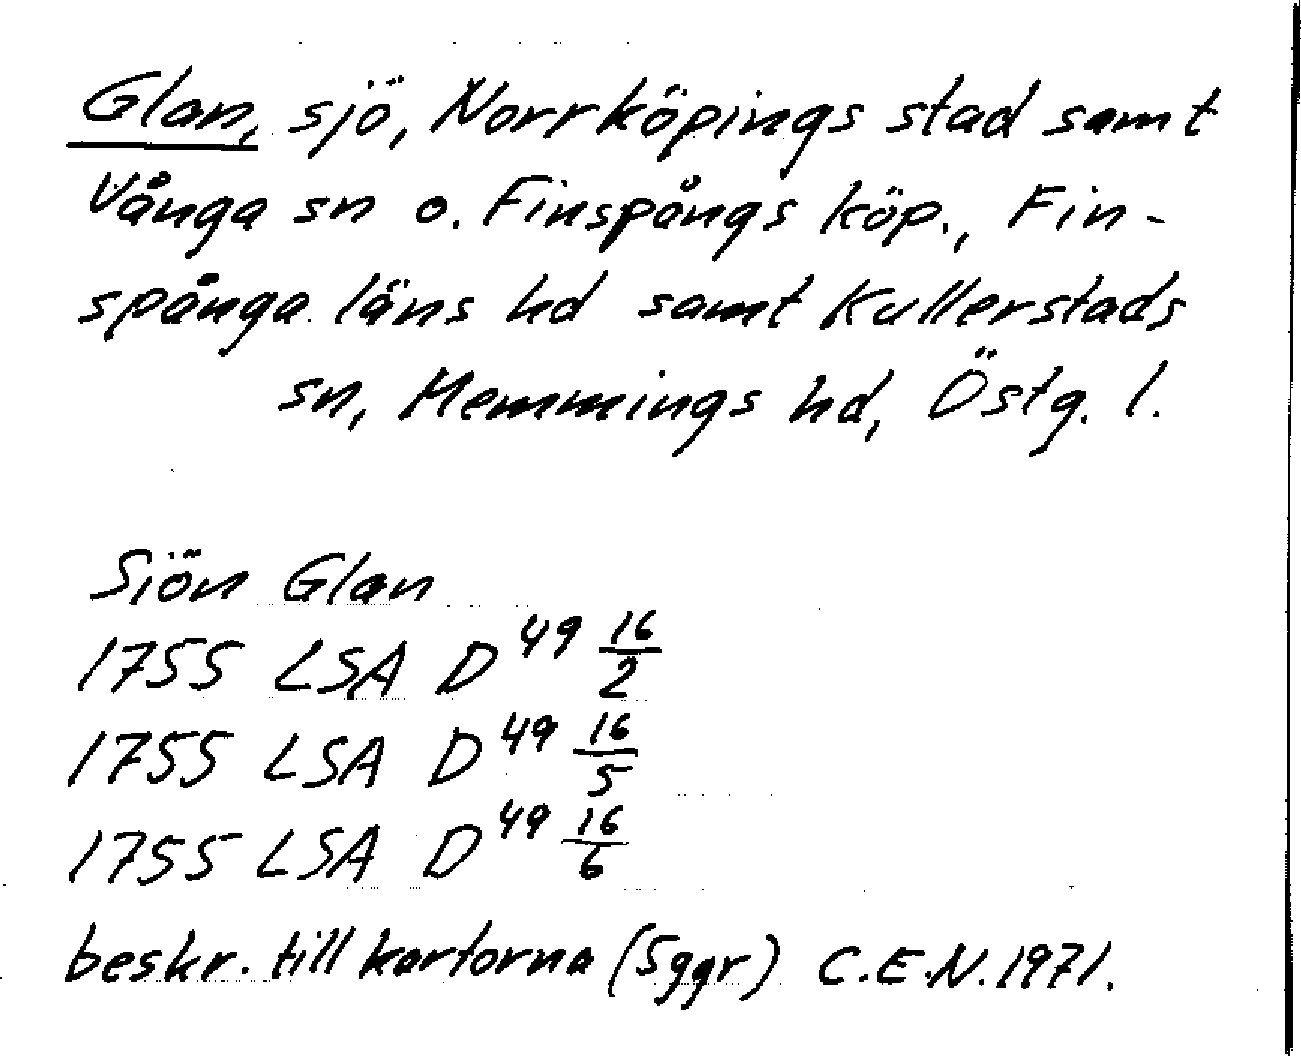 Glan, sjö, Norrköpings stad samt
Vånga sn o. Finspångs köp., Fin-
spånga läns hd samt Kullerstads
sn, Memmings hd, Östg. l.
Siön Glan
1755 LSA D 49 16/2
1755 LSA D 49 16/5
1755 LSA D 49 16/6
beskr. till kartorna (5ggr) C.E.N. 1971.